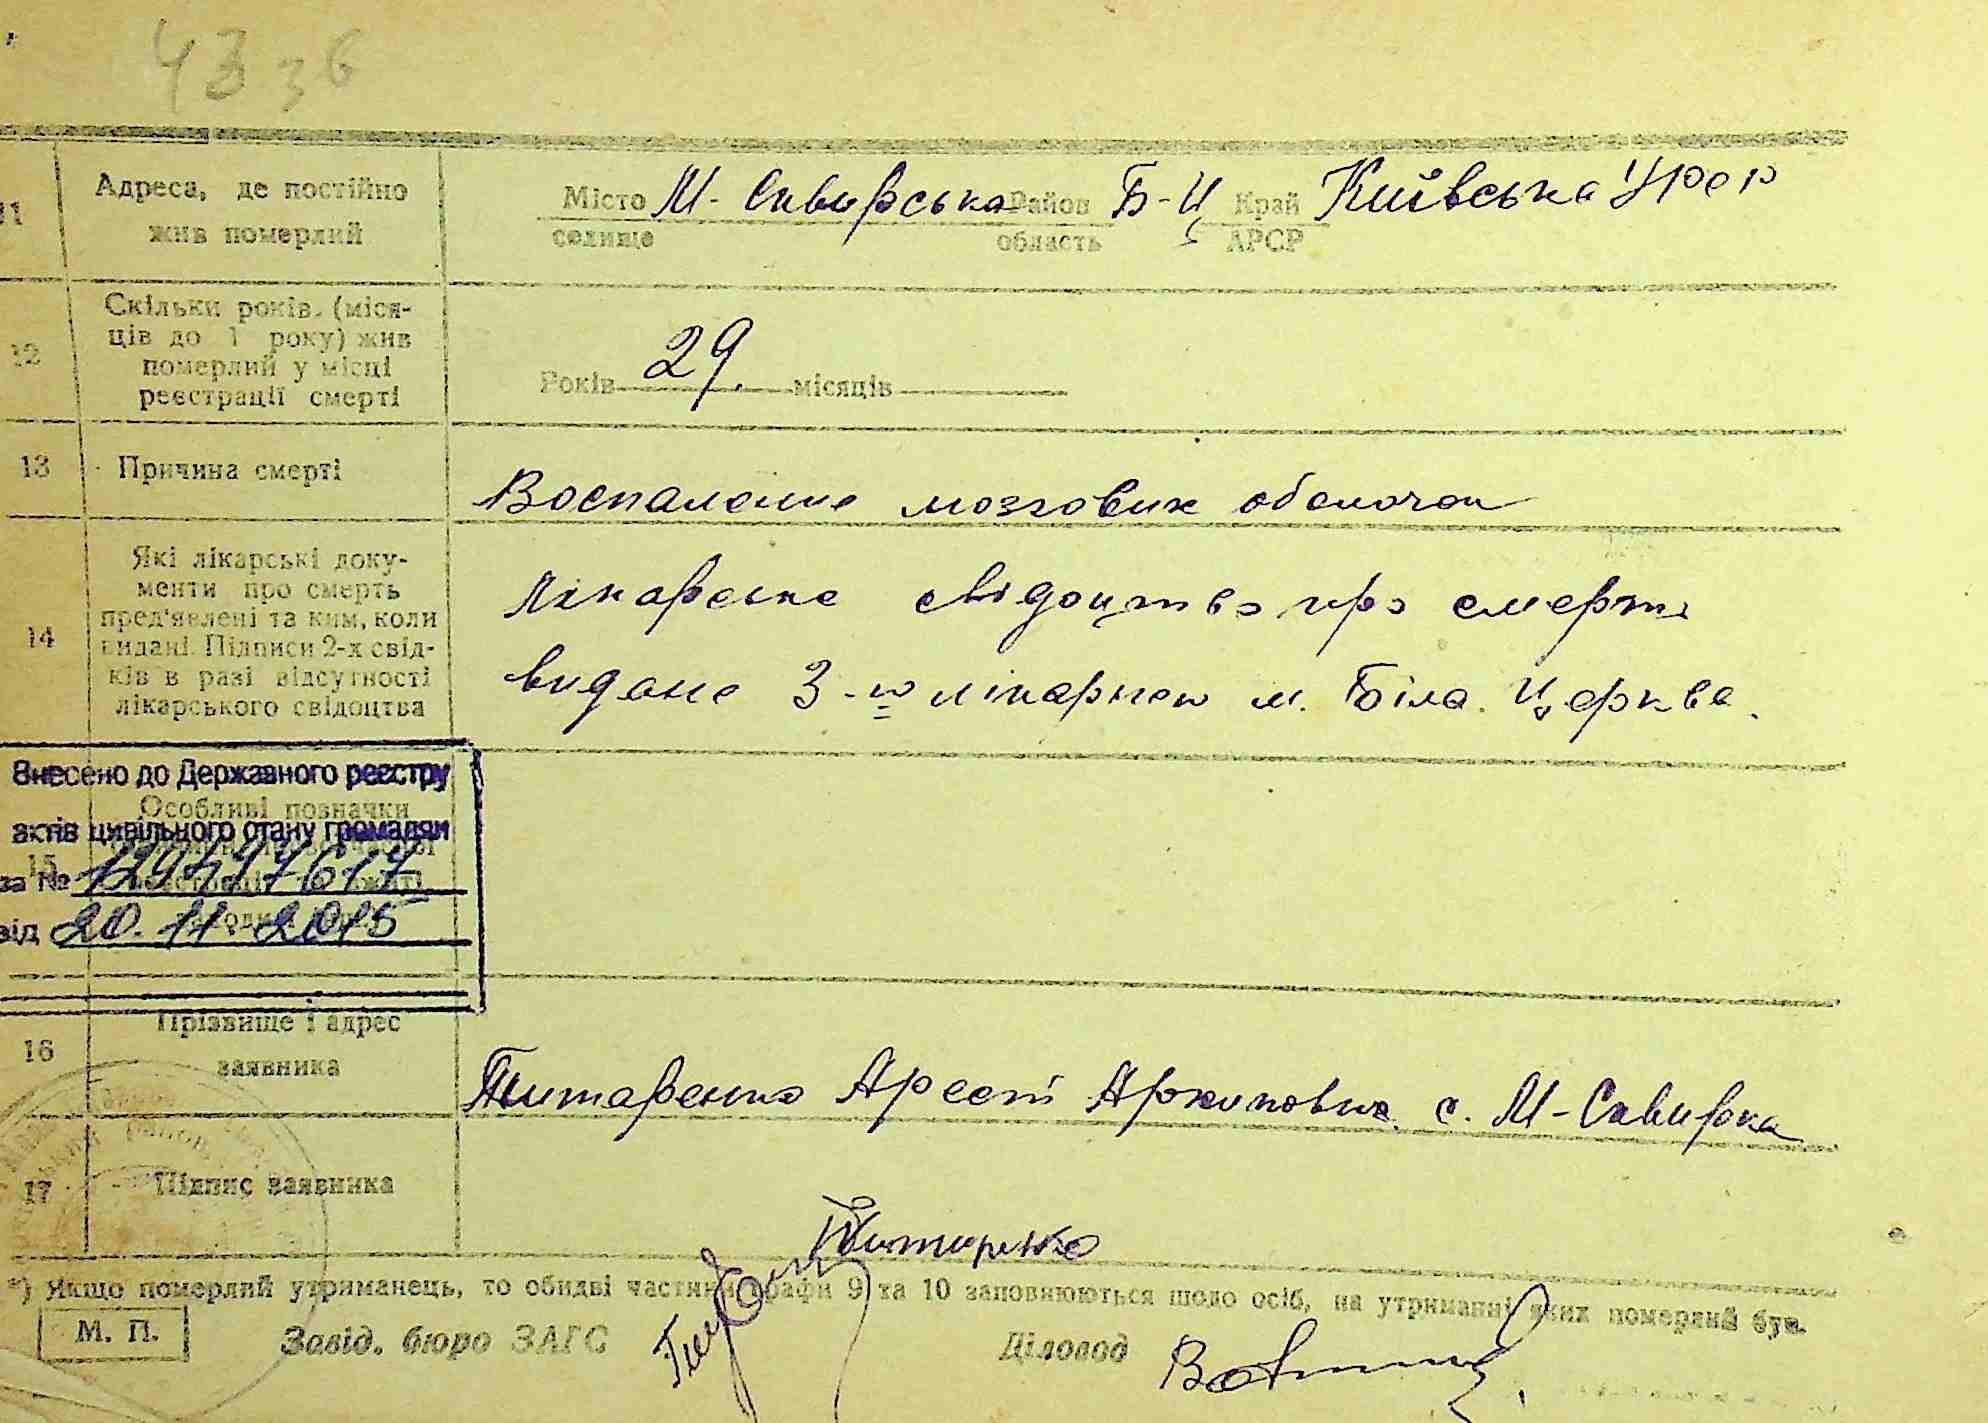 43 зв
11
Адреса, де постійно
жив померлий
Місто М-Сквирська Район Б-Ц Край Київська УРСР
селище область АРСР
12
Скільки років (міся-
ців до 1 року) жив
померлий у місці
реєстрації смерті
Років 29. місяців
13
Причина смерті
Воспаление мозговик оболочок
14
Які лікарські доку-
менти про смерть
пред'явлені та ким, коли
видані. Підписи 2-х свід-
ків в разі відсутності
лікарського свідоцтва
Лікарське свідоцтво про смерть
видане 3-ю лікарнею м. Біла. Церква.
Внесено до Державного реєстру
актів цивільного стану громадян
за №
від 20.11.2015
15
Особливі позначки
16
Прізвище і адрес
заявника
Титаренко Арсент с. М-Сквирка
17
Підпис заявника
Титаренко
*) Якщо померлий утриманець, то обидві частини графи 9 та 10 заповнюються щодо осіб, на утриманні яких померлий був.
М. П.
Завід. бюро ЗАГС
Діловод